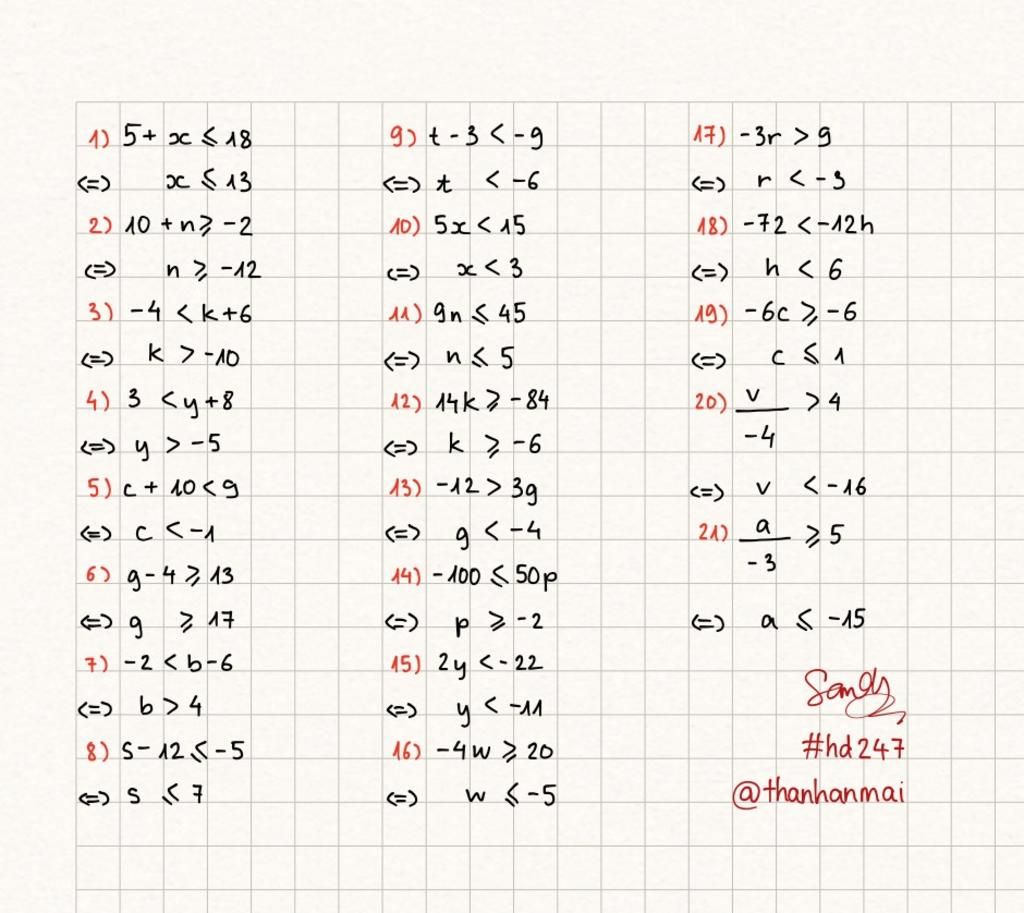 1) 5 + x ⩽ 18
<=> x ⩽ 13
2) 10 + n ⩾ -2
<=> n ⩾ -12
3) -4 < k + 6
<=> k > -10
4) 3 < y + 8
<=> y > -5
5) c + 10 < 9
<=> c < -1
6) g - 4 ⩾ 13
<=> g ⩾ 17
7) -2 < b - 6
<=> b > 4
8) s - 12 ⩽ -5
<=> s ⩽ 7
9) t - 3 < -9
<=> t < -6
10) 5x < 15
<=> x < 3
11) 9n ⩽ 45
<=> n ⩽ 5
12) 14k ⩾ -84
<=> k ⩾ -6
13) -12 > 3g
<=> g < -4
14) -100 ⩽ 50p
<=> p ⩾ -2
15) 2y < -22
<=> y < -11
16) -4w ⩾ 20
<=> w ⩽ -5
17) -3r > 9
<=> r < -3
18) -72 < -12h
<=> h < 6
19) -6c ⩾ -6
<=> c ⩽ 1
20) v/-4 > 4
<=> v < -16
21) a/-3 ⩾ 5
<=> a ⩽ -15
Sandy
#hd247
@thanhanmai